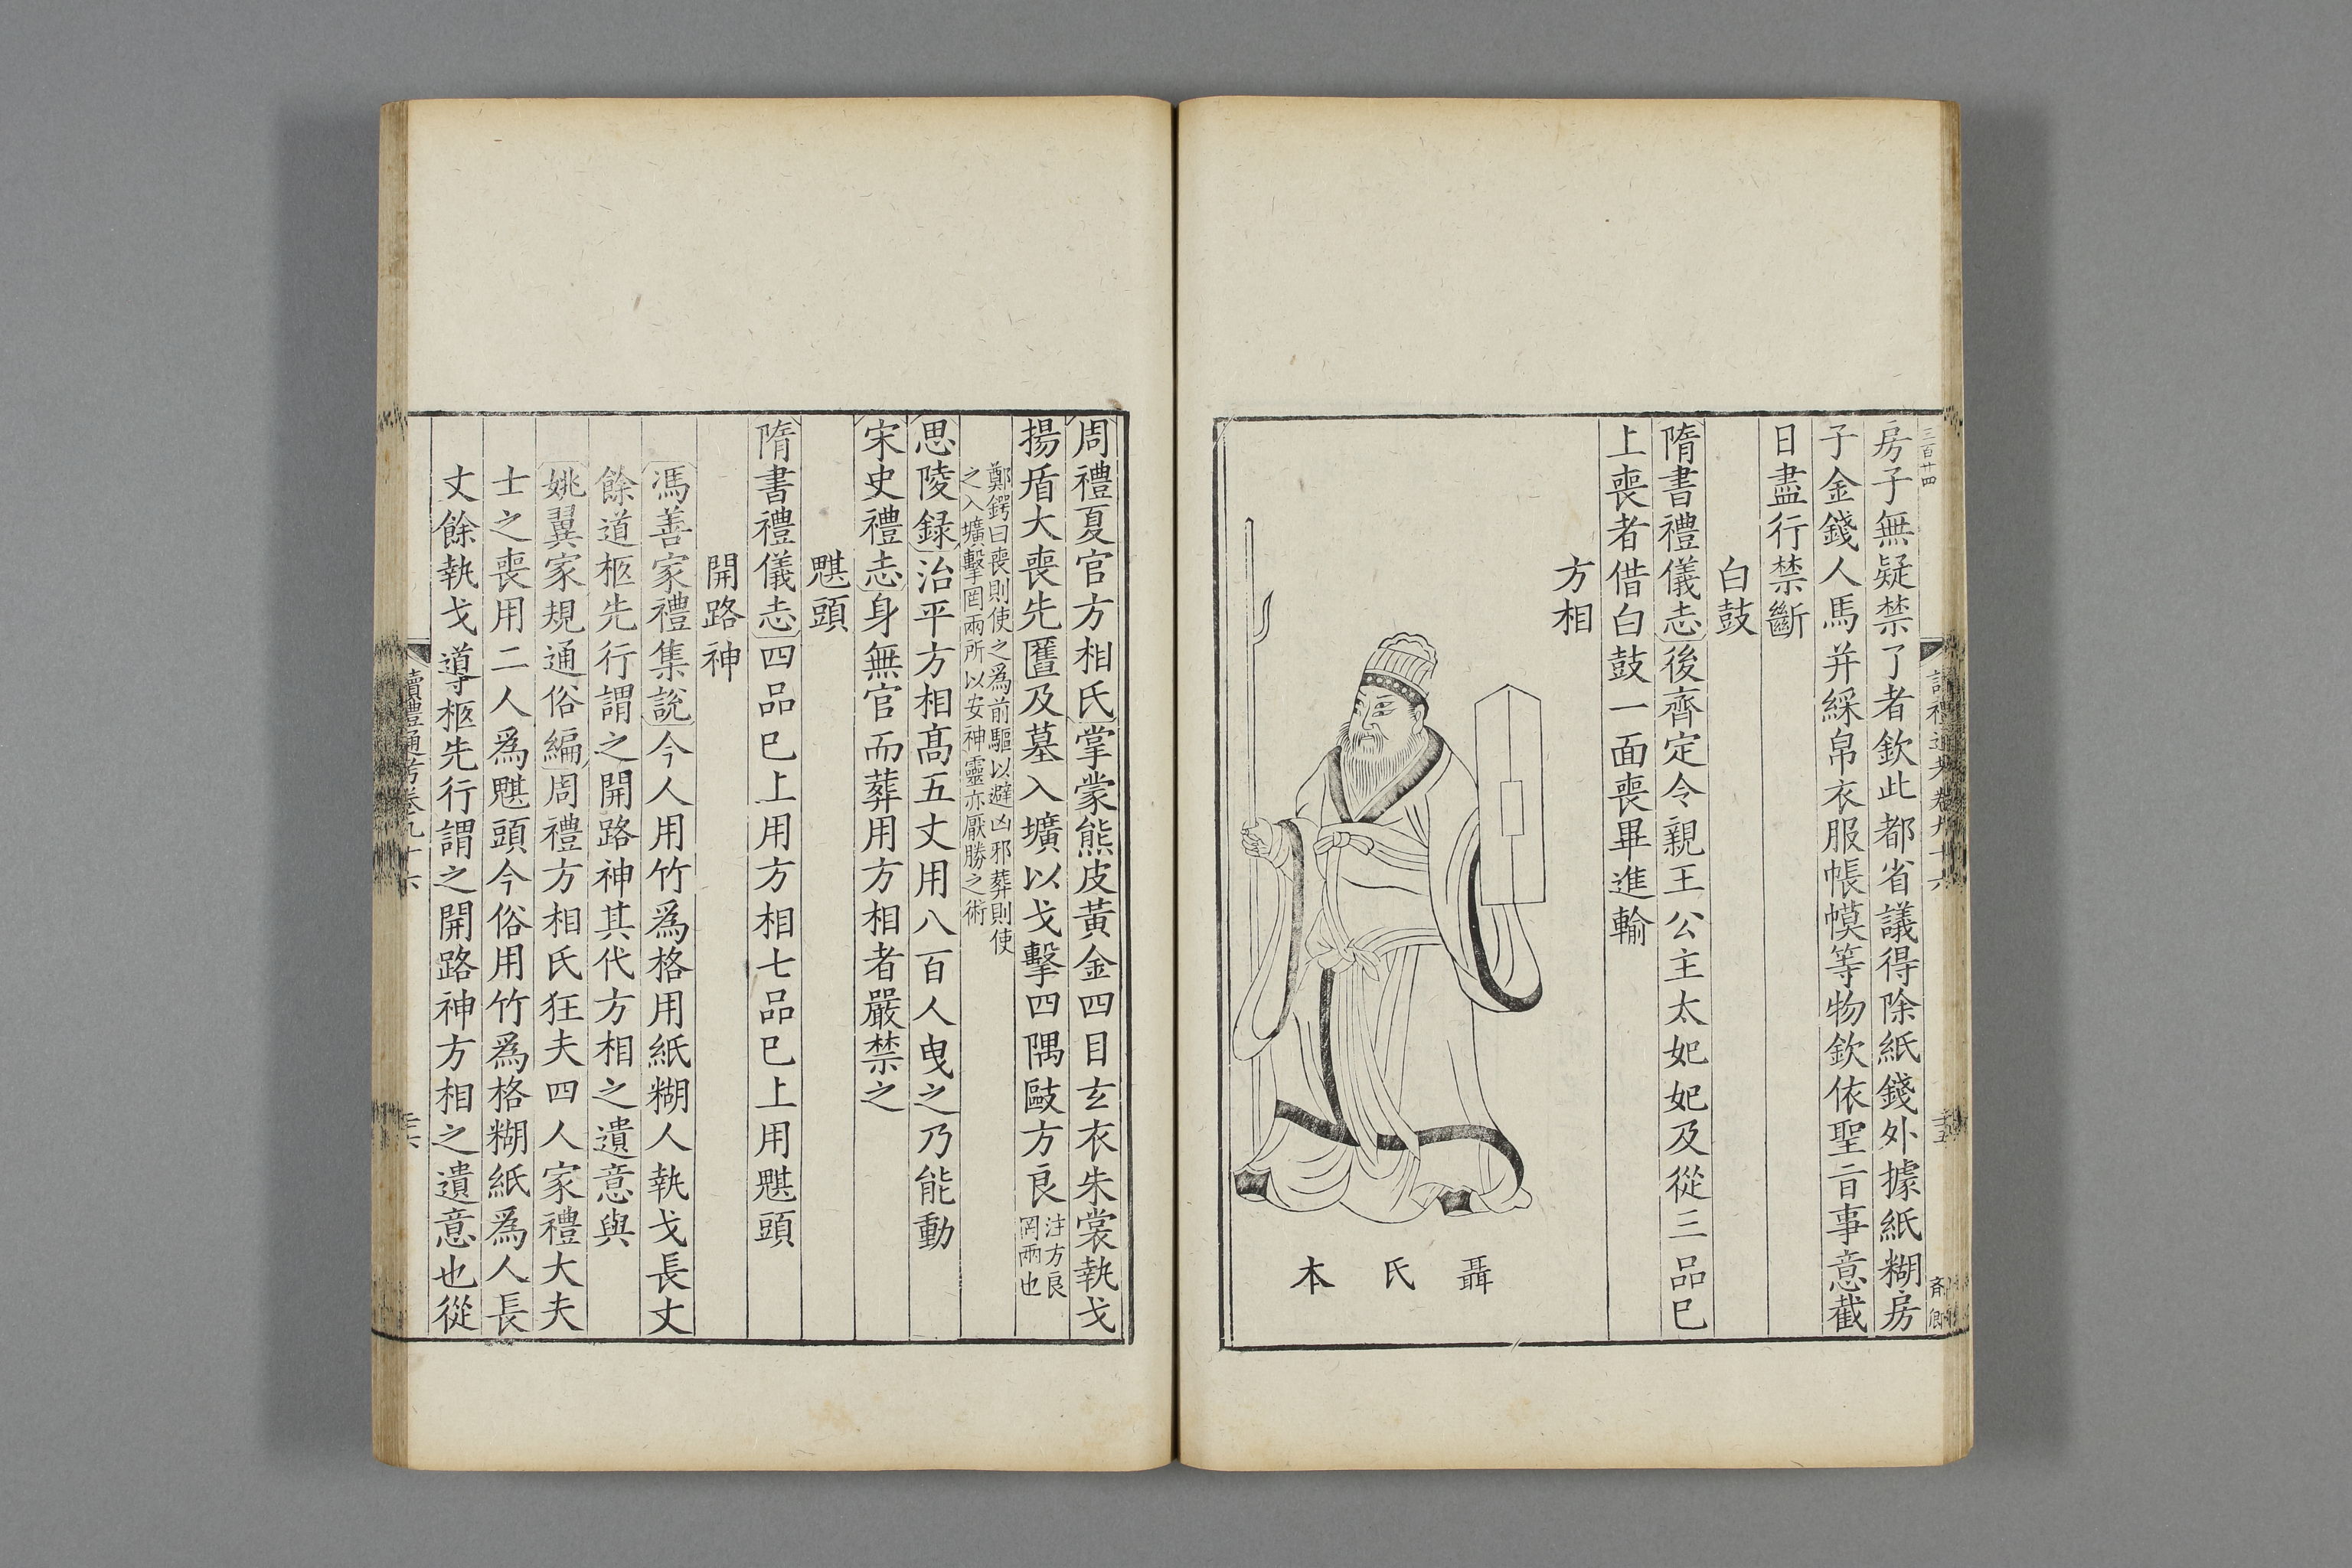 三百十四
房子無疑禁了者欽此都省議得除紙錢外據紙糊房
子金錢人馬并綵帛衣服帳幙等物欽依聖旨事意截
日盡行禁斷
白鼓
隋書禮儀志後齊定令親王公主太妃妃及從三品已
上喪者借白鼓一面喪畢進輸
方相
聶氏本
周禮夏官方相氏掌蒙熊皮黃金四目玄衣朱裳執戈
揚盾大喪先匶及墓入壙以戈擊四隅敺方良注方良罔兩也
鄭鍔曰喪則使之爲前驅以避凶邪葬則使
之入壙擊罔兩所以安神靈亦厭勝之術
思陵録治平方相髙五丈用八百人曳之乃能動
宋史禮志身無官而葬用方相者嚴禁之
魌頭
隋書禮儀志四品已上用方相七品已上用魌頭
開路神
馮善家禮集說今人用竹爲格用紙糊人執戈長丈
餘道柩先行謂之開路神其代方相之遺意與
姚翼家規通俗編周禮方相氏狂夫四人家禮大夫
士之喪用二人爲魌頭今俗用竹爲格糊紙爲人長
丈餘執戈導柩先行謂之開路神方相之遺意也從
讀禮通考卷九十六